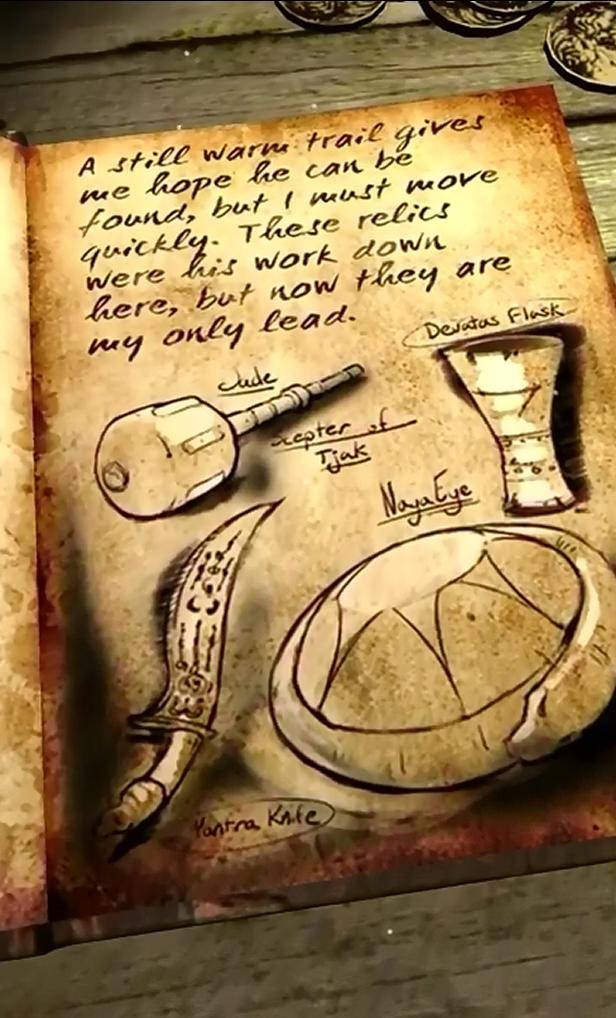 A still warm trail gives
me hope he can be
found, but I must move
quickly. These relics
were his work down
here, but now they are
my only lead.
Devatas Flask
Jade
Scepter of
Tjak
Naya Eye
Yantra Knife